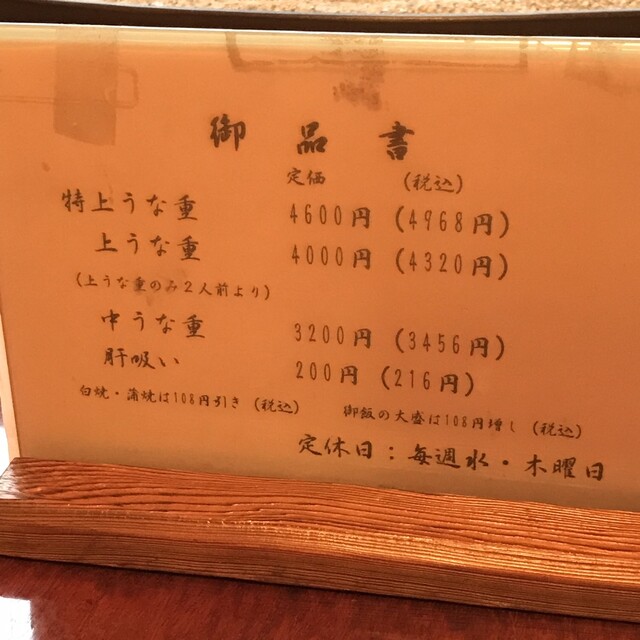 御品書
定価 (税込)
特上うな重 4600円 (4968円)
上うな重 4000円 (4320円)
(上うな重のみ2人前より)
中うな重 3200円 (3456円)
肝吸い 200円 (216円)
白焼・蒲焼は108円引き (税込)
御飯の大盛は108円増し (税込)
定休日：毎週水・木曜日